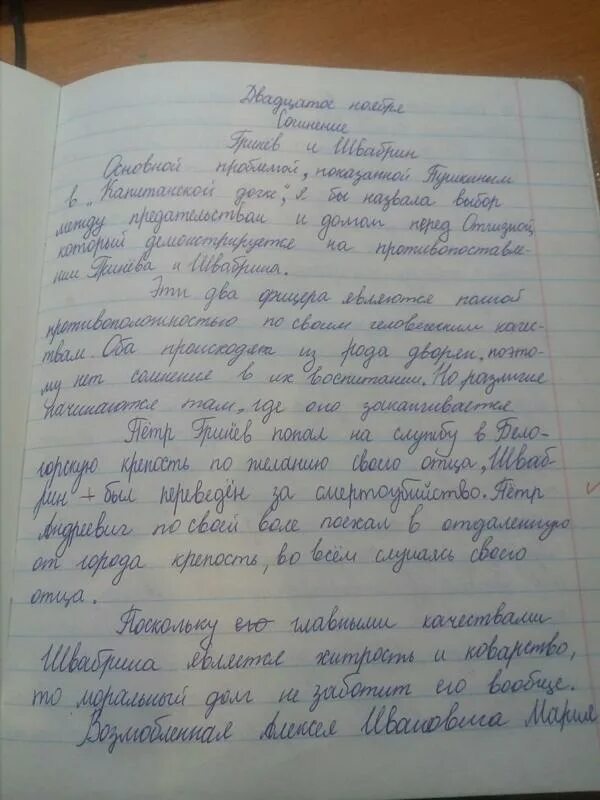 Двадцатое ноября
Сочинение
Гринёв и Швабрин
Основной проблемой, показанной Пушкиным
в „Капитанской дочке", я бы назвала выбор
между предательством и долгом перед Отчизной,
который демонстрируется на противопоставле-
нии Гринёва и Швабрина.
Эти два офицера являются полной
противоположностью по своим человеческим качес-
твам. Оба происходят из рода дворян, поэто-
му нет сомнение в их воспитании. Но различие
начинаются там, где оно заканчивается
Пётр Гринёв попал на службу в Бело-
горскую крепость по желанию своего отца, Шваб-
рин + был переведён за смертоубийство. Пётр
Андреевич по своей воле поехал в отдаленную
от города крепость, во всём слушаясь своего
отца.
Поскольку его главными качествами
Швабрина является хитрость и коварство,
то моральный долг не заботит его вообще.
Возлюбленная Алексея Ивановича Мария